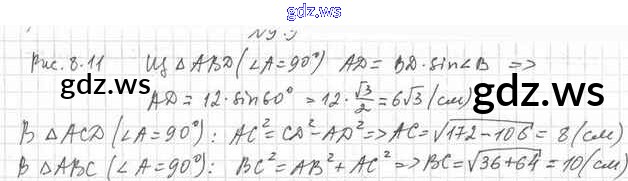 gdz.ws
№9.9
Рис. 8.11 Из △ABD (∠A=90°) AD = BD·sin∠B =>
gdz.ws
AD = 12·sin60° = 12·√3/2 = 6√3 (см)
gdz.ws
В △ACD (∠A=90°): AC² = CD² - AD² => AC = √172-106 = 8 (см)
В △ABC (∠A=90°): BC² = AB² + AC² => BC = √36+64 = 10 (см)
gdz.ws